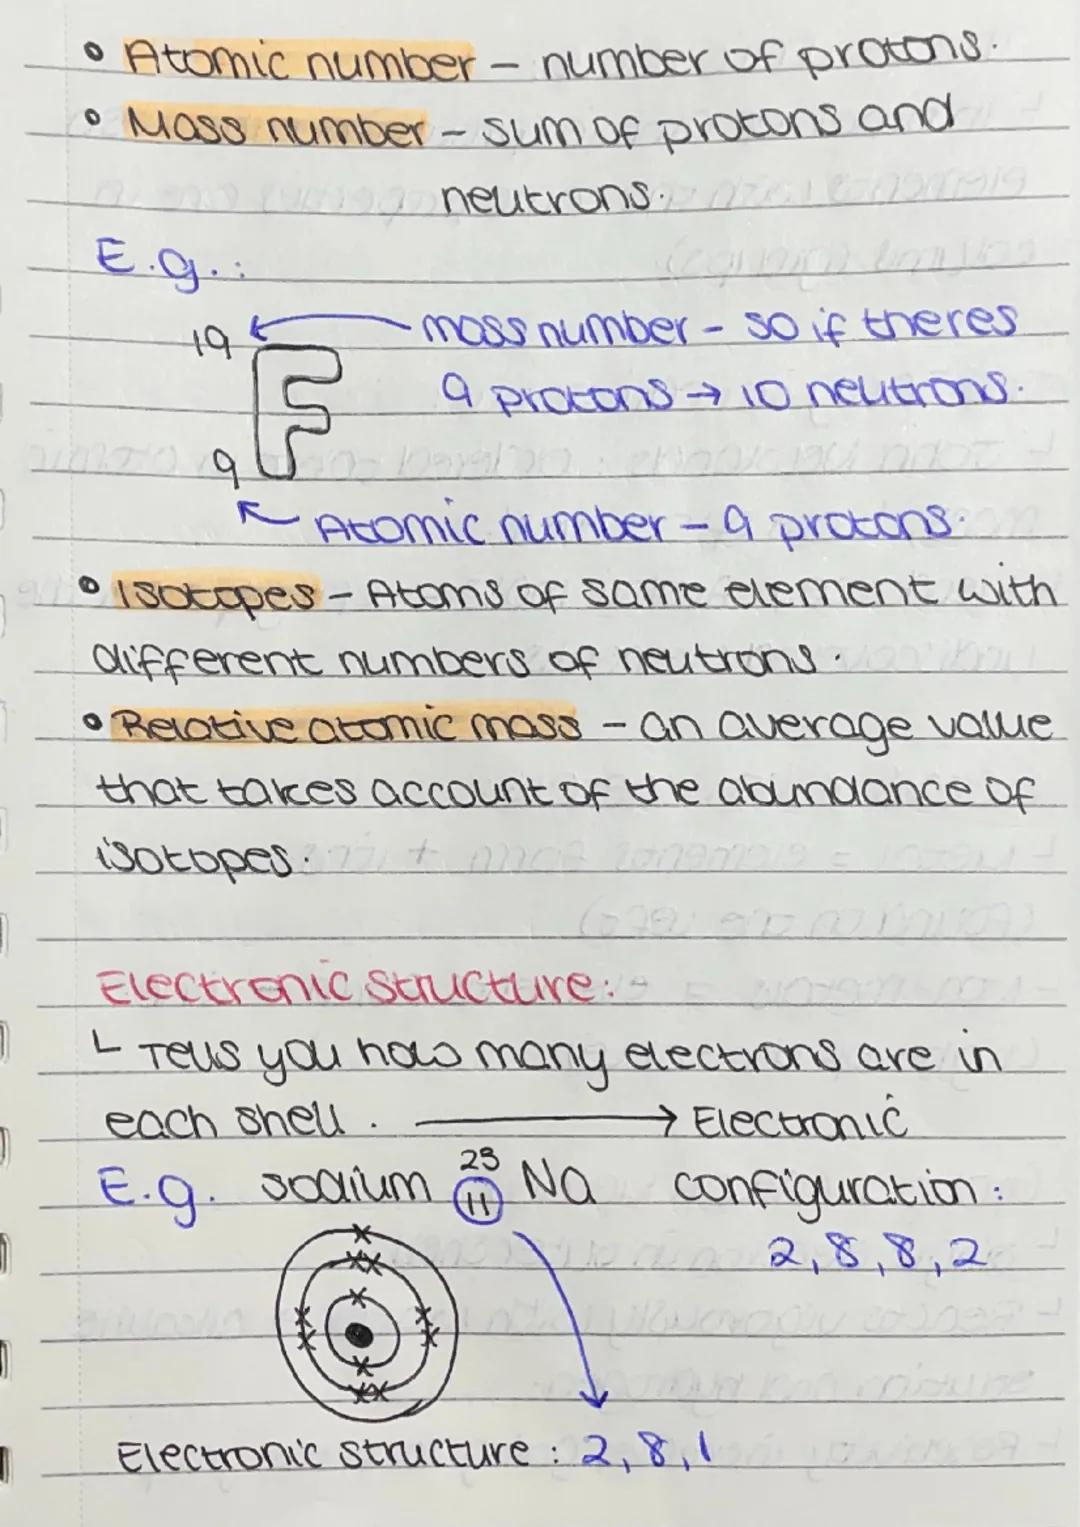 • Atomic number – number of protons.
• Mass number – sum of protons and
neutrons.
E.g.:
19 mass number – so if theres
F 9 protons → 10 neutrons.
9
Atomic number – 9 protons.
• Isotopes – Atoms of same element with
different numbers of neutrons.
• Relative atomic mass – an average value
that takes account of the abundance of
isotopes.
Electronic structure:
└ Tells you how many electrons are in
each shell. → Electronic
E.g. sodium 23 11 Na configuration:
2, 8, 8, 2
Electronic structure: 2, 8, 1